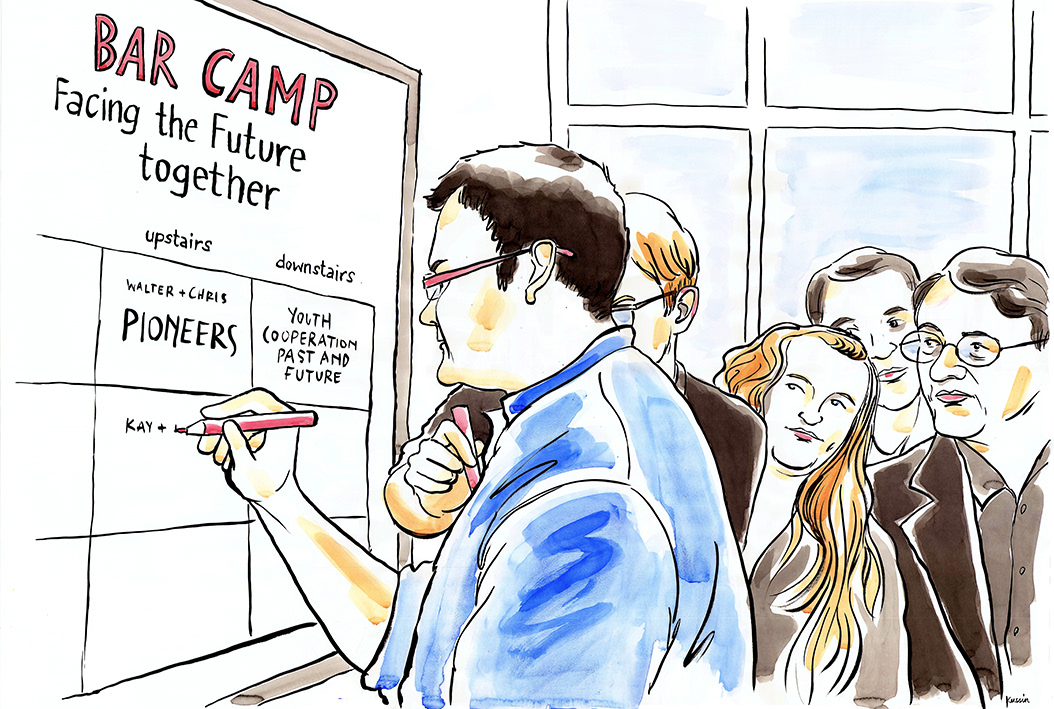 BAR CAMP
Facing the Future
together
upstairs
downstairs
WALTER + CHRIS
PIONEERS
YOUTH
COOPERATION
PAST AND
FUTURE
KAY +